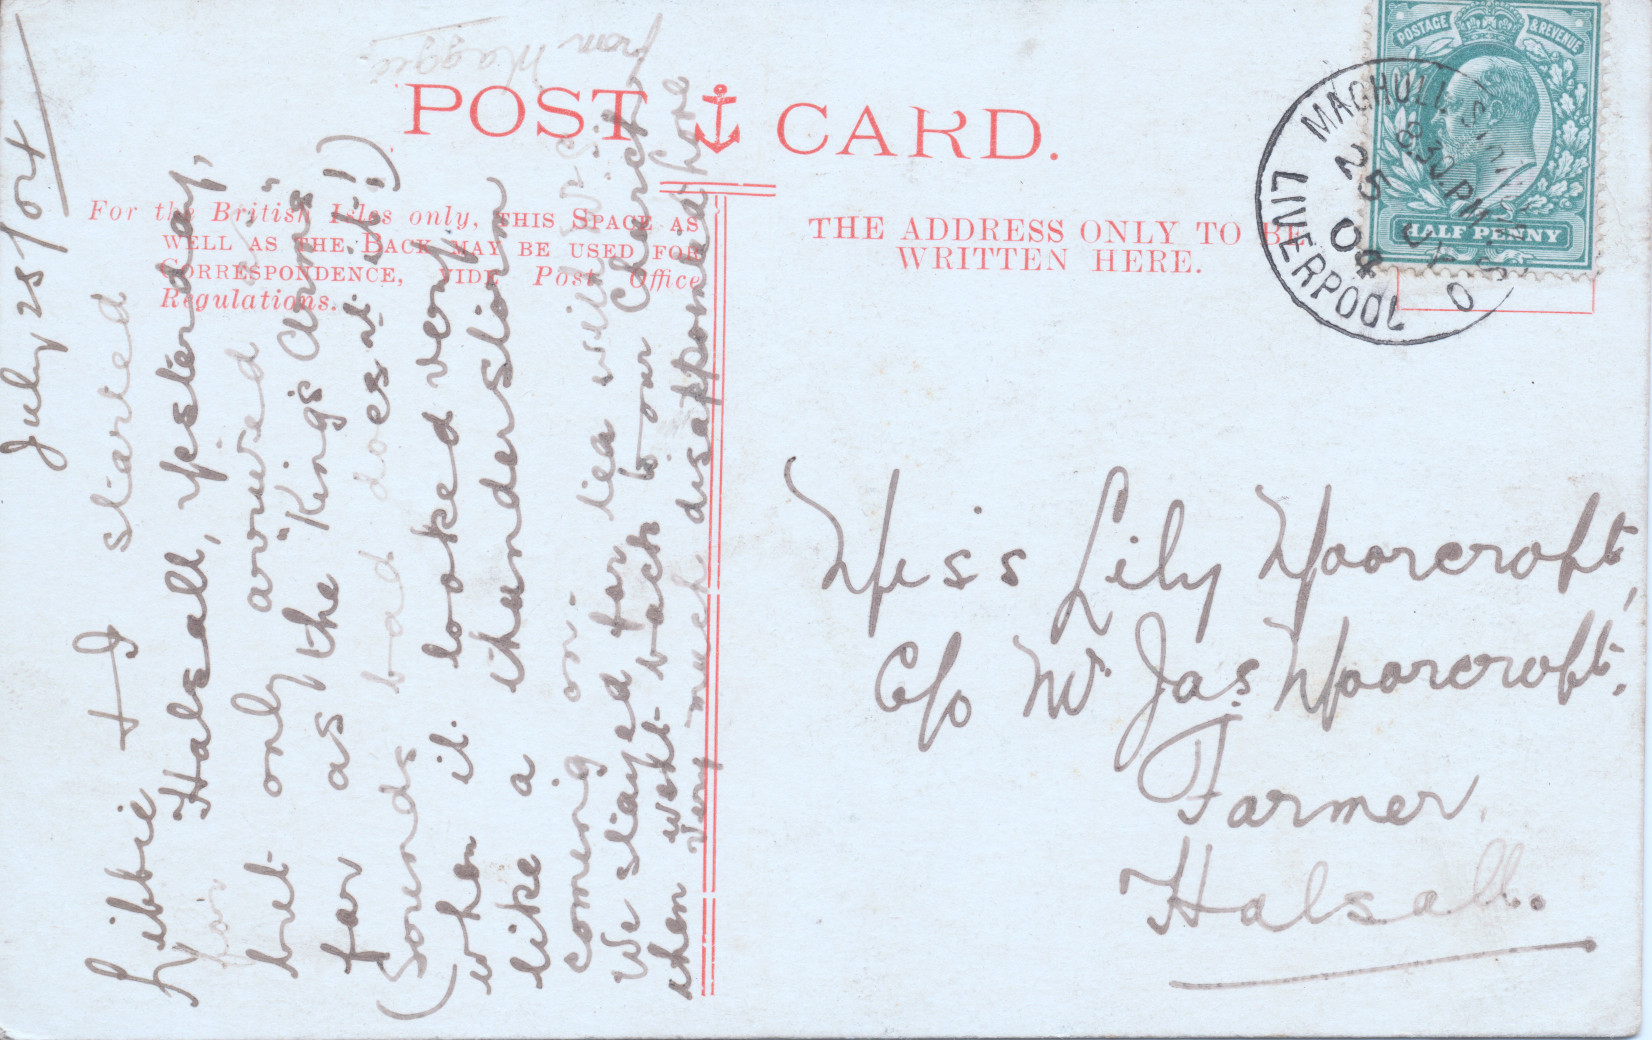 POST CARD.
For the British Isles only, THIS SPACE AS
WELL AS THE BACK MAY BE USED FOR
CORRESPONDENCE, VIDE Post Office
Regulations.
THE ADDRESS ONLY TO BE
WRITTEN HERE.
POSTAGE & REVENUE
HALF PENNY
MAGHULL
LIVERPOOL
8.30 PM
25
04
July 25/04
Libbie & I started
for Halsall, yesterday,
but only arrived
far as the "King's Arms"
(Sounds bad doesn't it!)
when it looked very
like a thunderstorm
coming on.
We stayed for tea with
then went back to our Church
very much disappointed
from Maggie.
Miss Lily Moorcroft,
C/o Mr Jas Moorcroft,
Farmer
Halsall.